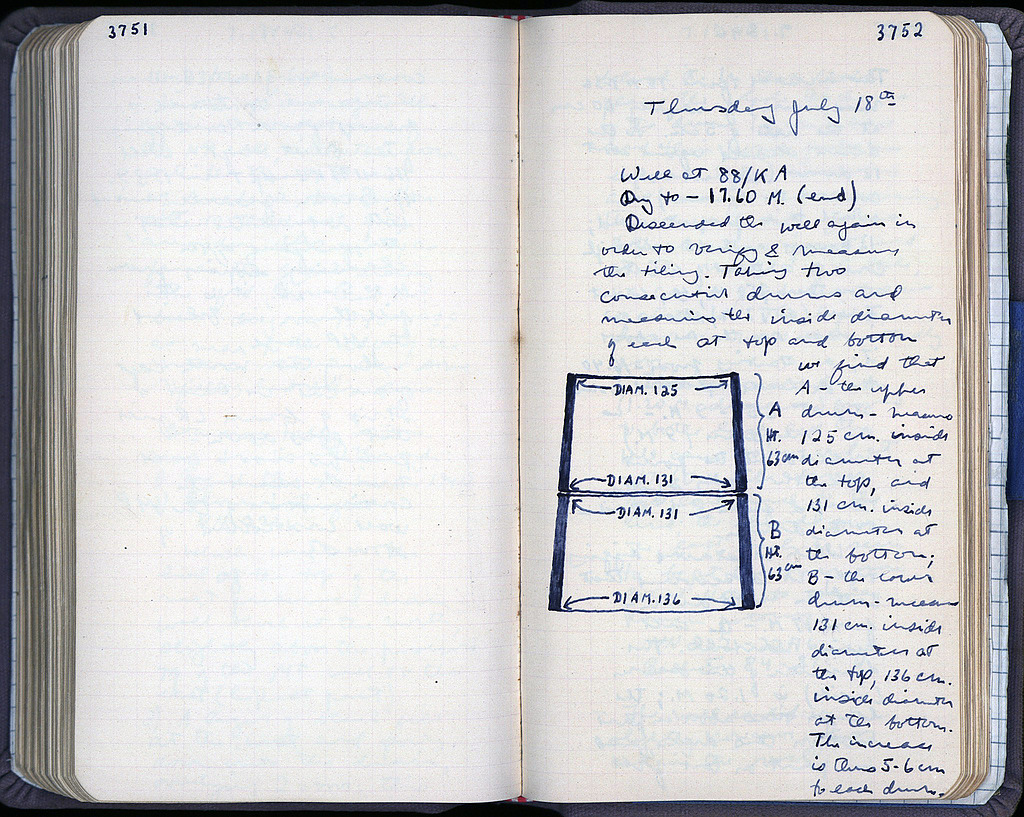 3751
3752
Thursday July 18th
Well at 88/KA
Dug to - 17.60 M. (end)
Descended the well again in
order to verify & measure
the tiling. Taking two
consecutive drums and
measuring the inside diameter
of each at top and bottom
we find that
A - the upper
drum - measures
125 cm. inside
diameter at
the top, and
131 cm. inside
diameter at
the bottom;
B - the lower
drum - measures
131 cm. inside
diameter at
the top, 136 cm.
inside diameter
at the bottom.
The increase
is thus 5-6 cm
to each drum.
DIAM. 125
A
Ht.
63 cm
DIAM. 131
DIAM. 131
B
Ht.
63 cm
DIAM. 136